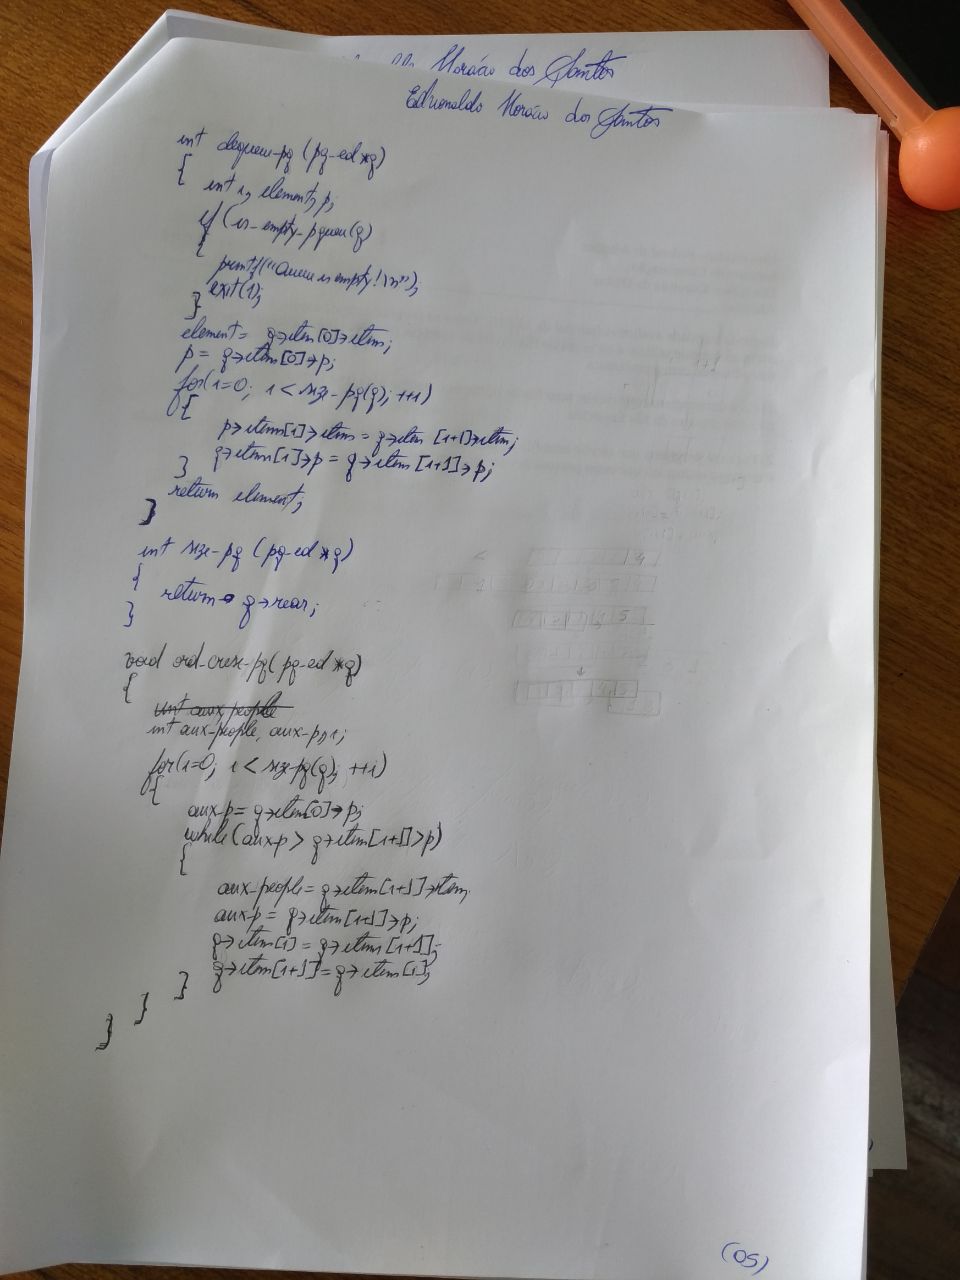 Horácio dos Santos
Edvonaldo Horácio dos Santos
int dequeue-pq (pq-ed *q)
{
int i, element, p;
if (is-empty-pqueu(q)
{
printf("Queue is empty!\n");
exit(1);
}
element = q->item[0]->item;
p = q->item[0]->p;
for(i=0; i < size-pq(q); ++i)
{
p->items[i]->item = q->item [i+1]->item;
q->items[i]->p = q->item [i+1]->p;
}
return element;
}
int size-pq (pq-ed *q)
{
return q->rear;
}
void ord-cresc-pq(pq-ed *q)
{
int aux people
int aux-people, aux-p, i;
for(i=0; i < size-pq(q); ++i)
{
aux-p = q->item[0]->p;
while (aux-p > q->item[i+1]->p)
{
aux-people = q->item[i+1]->item;
aux-p = q->item[i+1]->p;
q->item[i] = q->item[i+1];
q->item[i+1] = q->item[i];
}
}
}
(05)